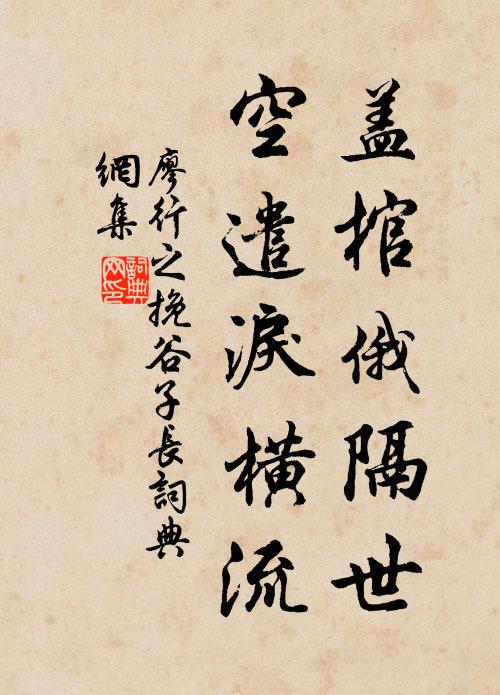 盖棺俄隔世
空遣淚橫流
廖行之挽谷子長詞典
網集
詞典網印